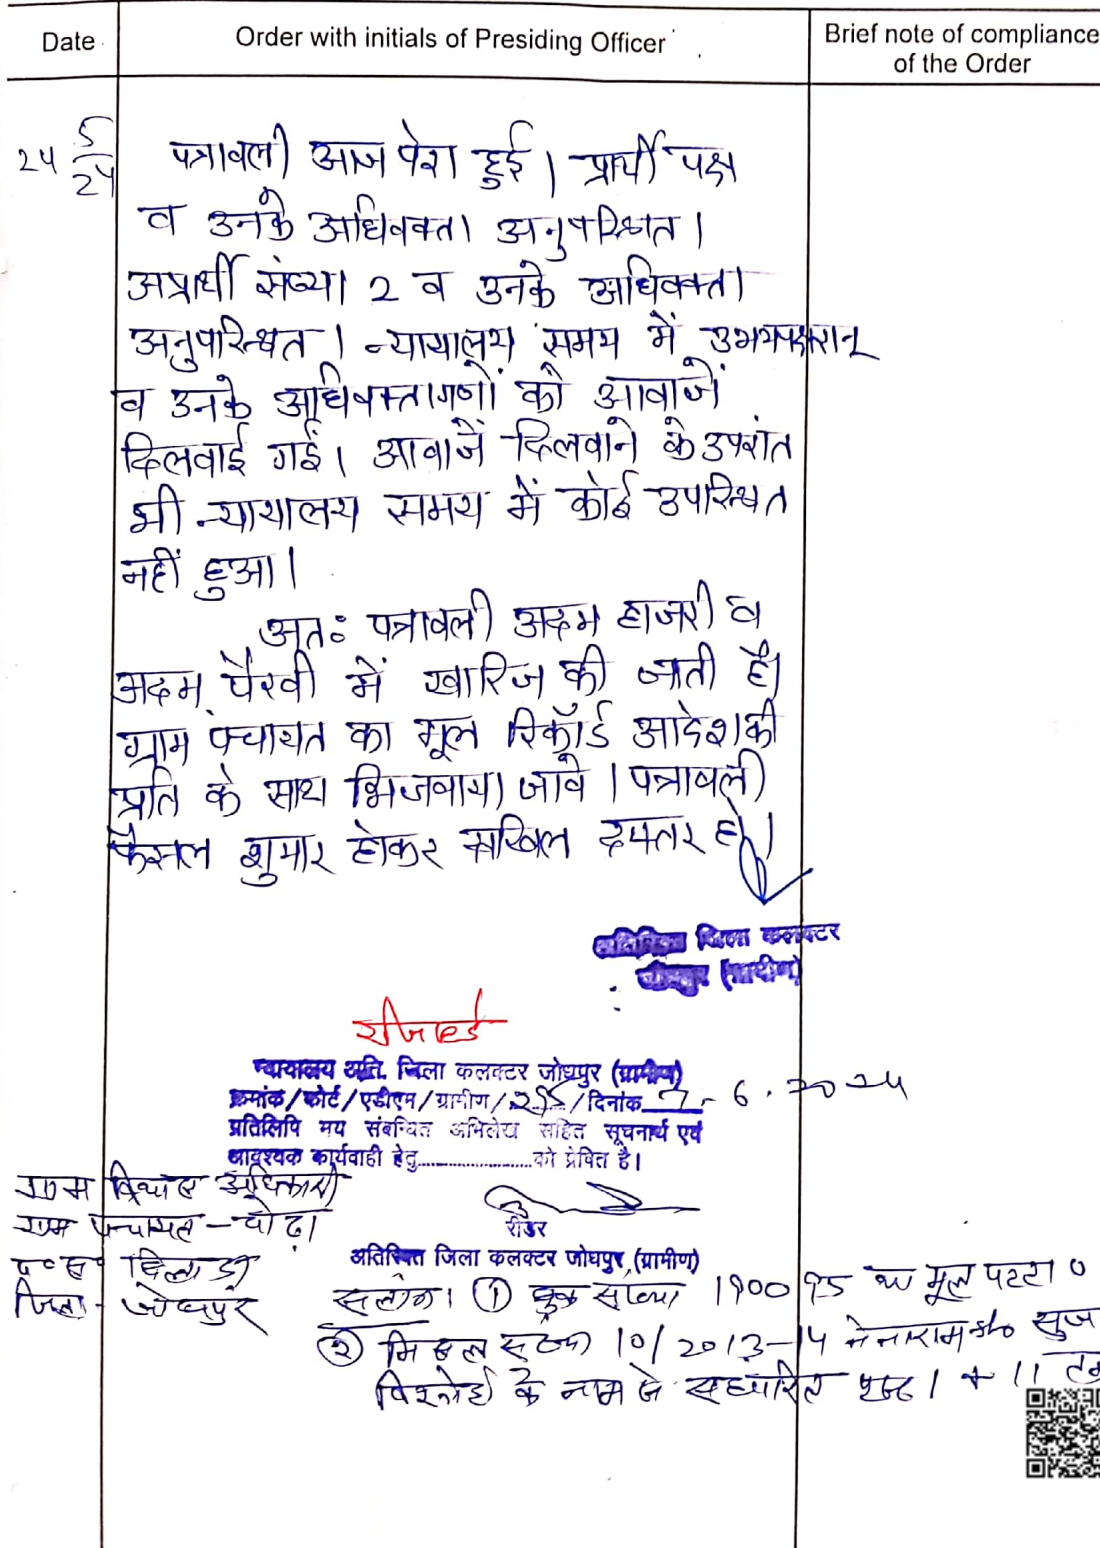 Date
Order with initials of Presiding Officer
Brief note of compliance
of the Order
24 5/24
पत्रावली आज पेश हुई। प्रार्थी पक्ष
व उनके अधिवक्ता अनुपस्थित।
अप्रार्थी संख्या 2 व उनके अधिवक्ता
अनुपस्थित। न्यायालय समय में उभयपक्षकारान्
व उनके अधिवक्तागणों को आवाजें
दिलवाई गईं। आवाजें दिलवाने के उपरांत
भी न्यायालय समय में कोई उपस्थित
नहीं हुआ।
अतः पत्रावली अदम हाजरी व
अदम पैरवी में खारिज की जाती है।
ग्राम पंचायत का मूल रिकॉर्ड आदेश की
प्रति के साथ भिजवाया जावे। पत्रावली
फैसल शुमार होकर दाखिल दफ्तर हो।
अतिरिक्त जिला कलक्टर
जोधपुर (ग्रामीण)
रजिस्टर्ड
न्यायालय अति. जिला कलक्टर जोधपुर (ग्रामीण)
क्रमांक/कोर्ट/एडीएम/ग्रामीण/295/दिनांक 7-6.2024
प्रतिलिपि मय संबन्धित अभिलेख सहित सूचनार्थ एवं
आवश्यक कार्यवाही हेतु....................को प्रेषित है।
ग्राम विकास अधिकारी
ग्राम पंचायत -
पं०स० बिलाड़ा
जिला - जोधपुर
रीडर
अतिरिक्त जिला कलक्टर जोधपुर (ग्रामीण)
संलग्न। ① बुक संख्या 1900 का मूल पट्टा
② मिसल संख्या 10/2013-14 नेनाराम s/o
विश्नोई के नाम से संधारित पृष्ठ 1 से 11 तक